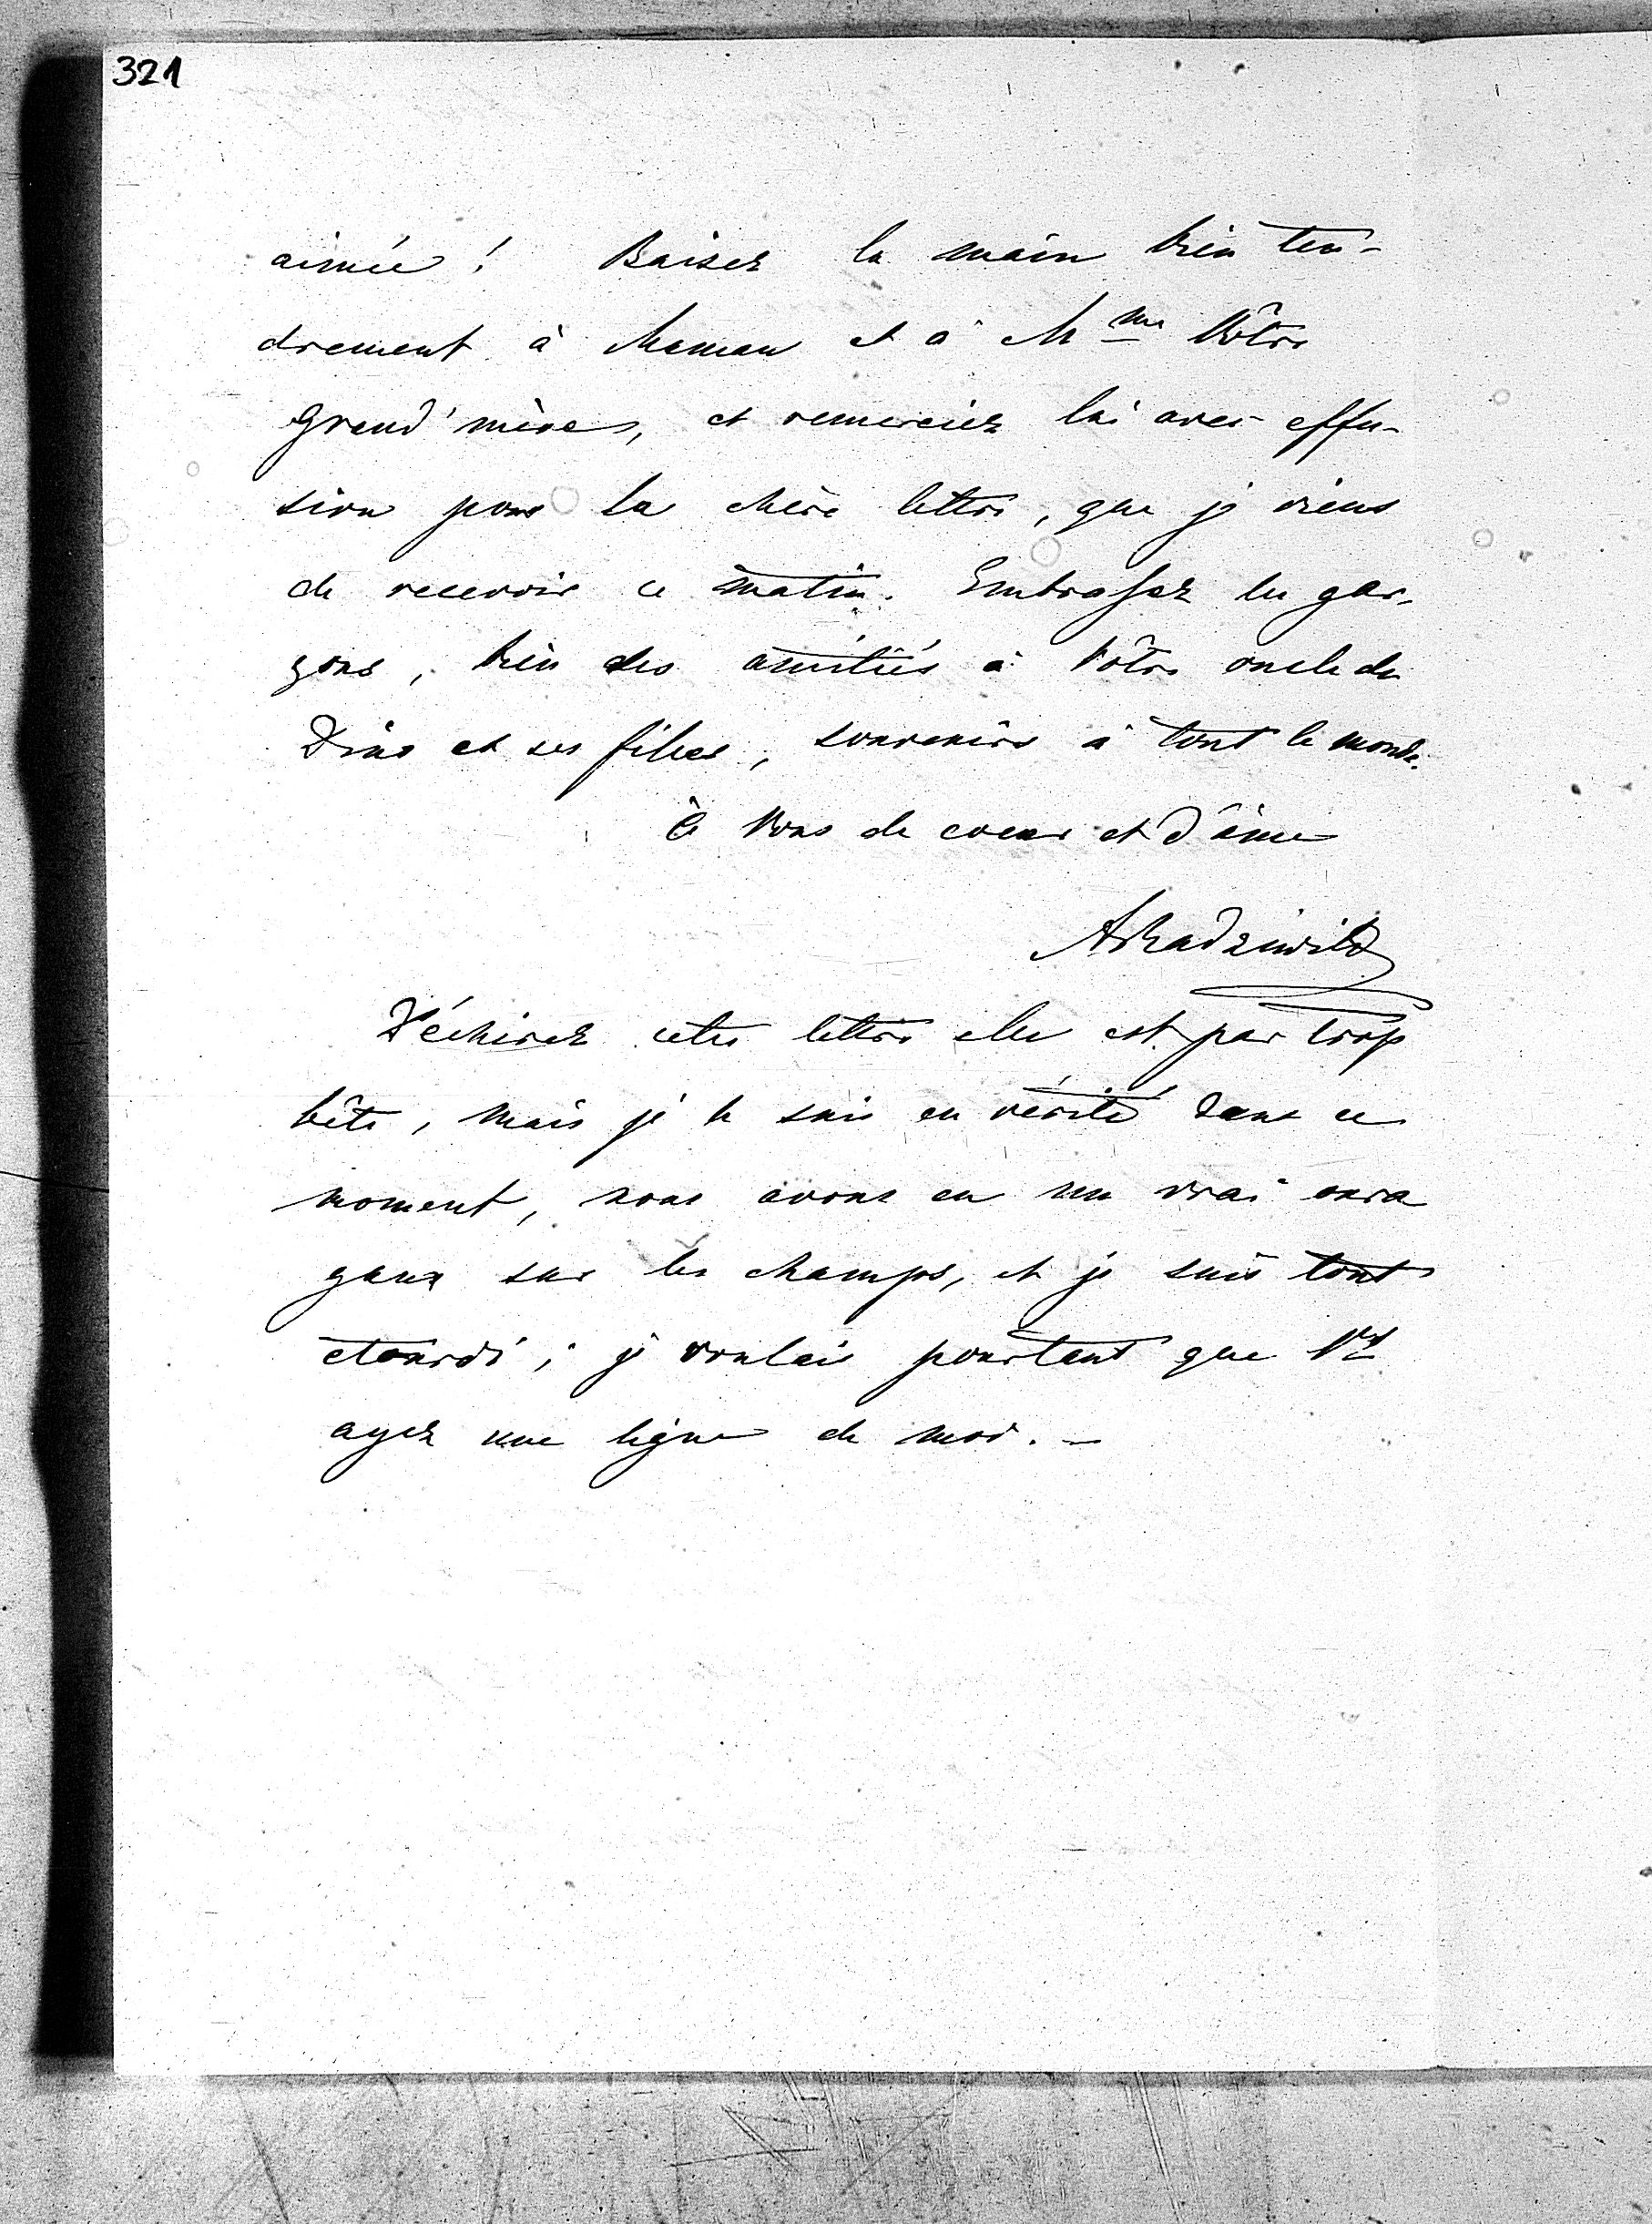 321
aimée! Baisez la main bien ten-
drement à Maman et à Mme Vôtre
Grand'mère, et remerciez lui avec effu-
sion pour sa chère lettre, que je viens
de recevoir ce matin. Embrassez les gar-
çons, bien des amitiés à Vôtre oncle de
Dino et ses filles, souvenirs à tout le monde.
à Vous de coeur et d'âme
ARadziwill
Déchirez cette lettre elle est par trop
bête, mais je le suis en vérité dans ce
moment, nous avons eu un vrai oura
gan sur les champs, et je suis tout
etourdi; je voulais pourtant que Vs
ayez une ligne de moi. –